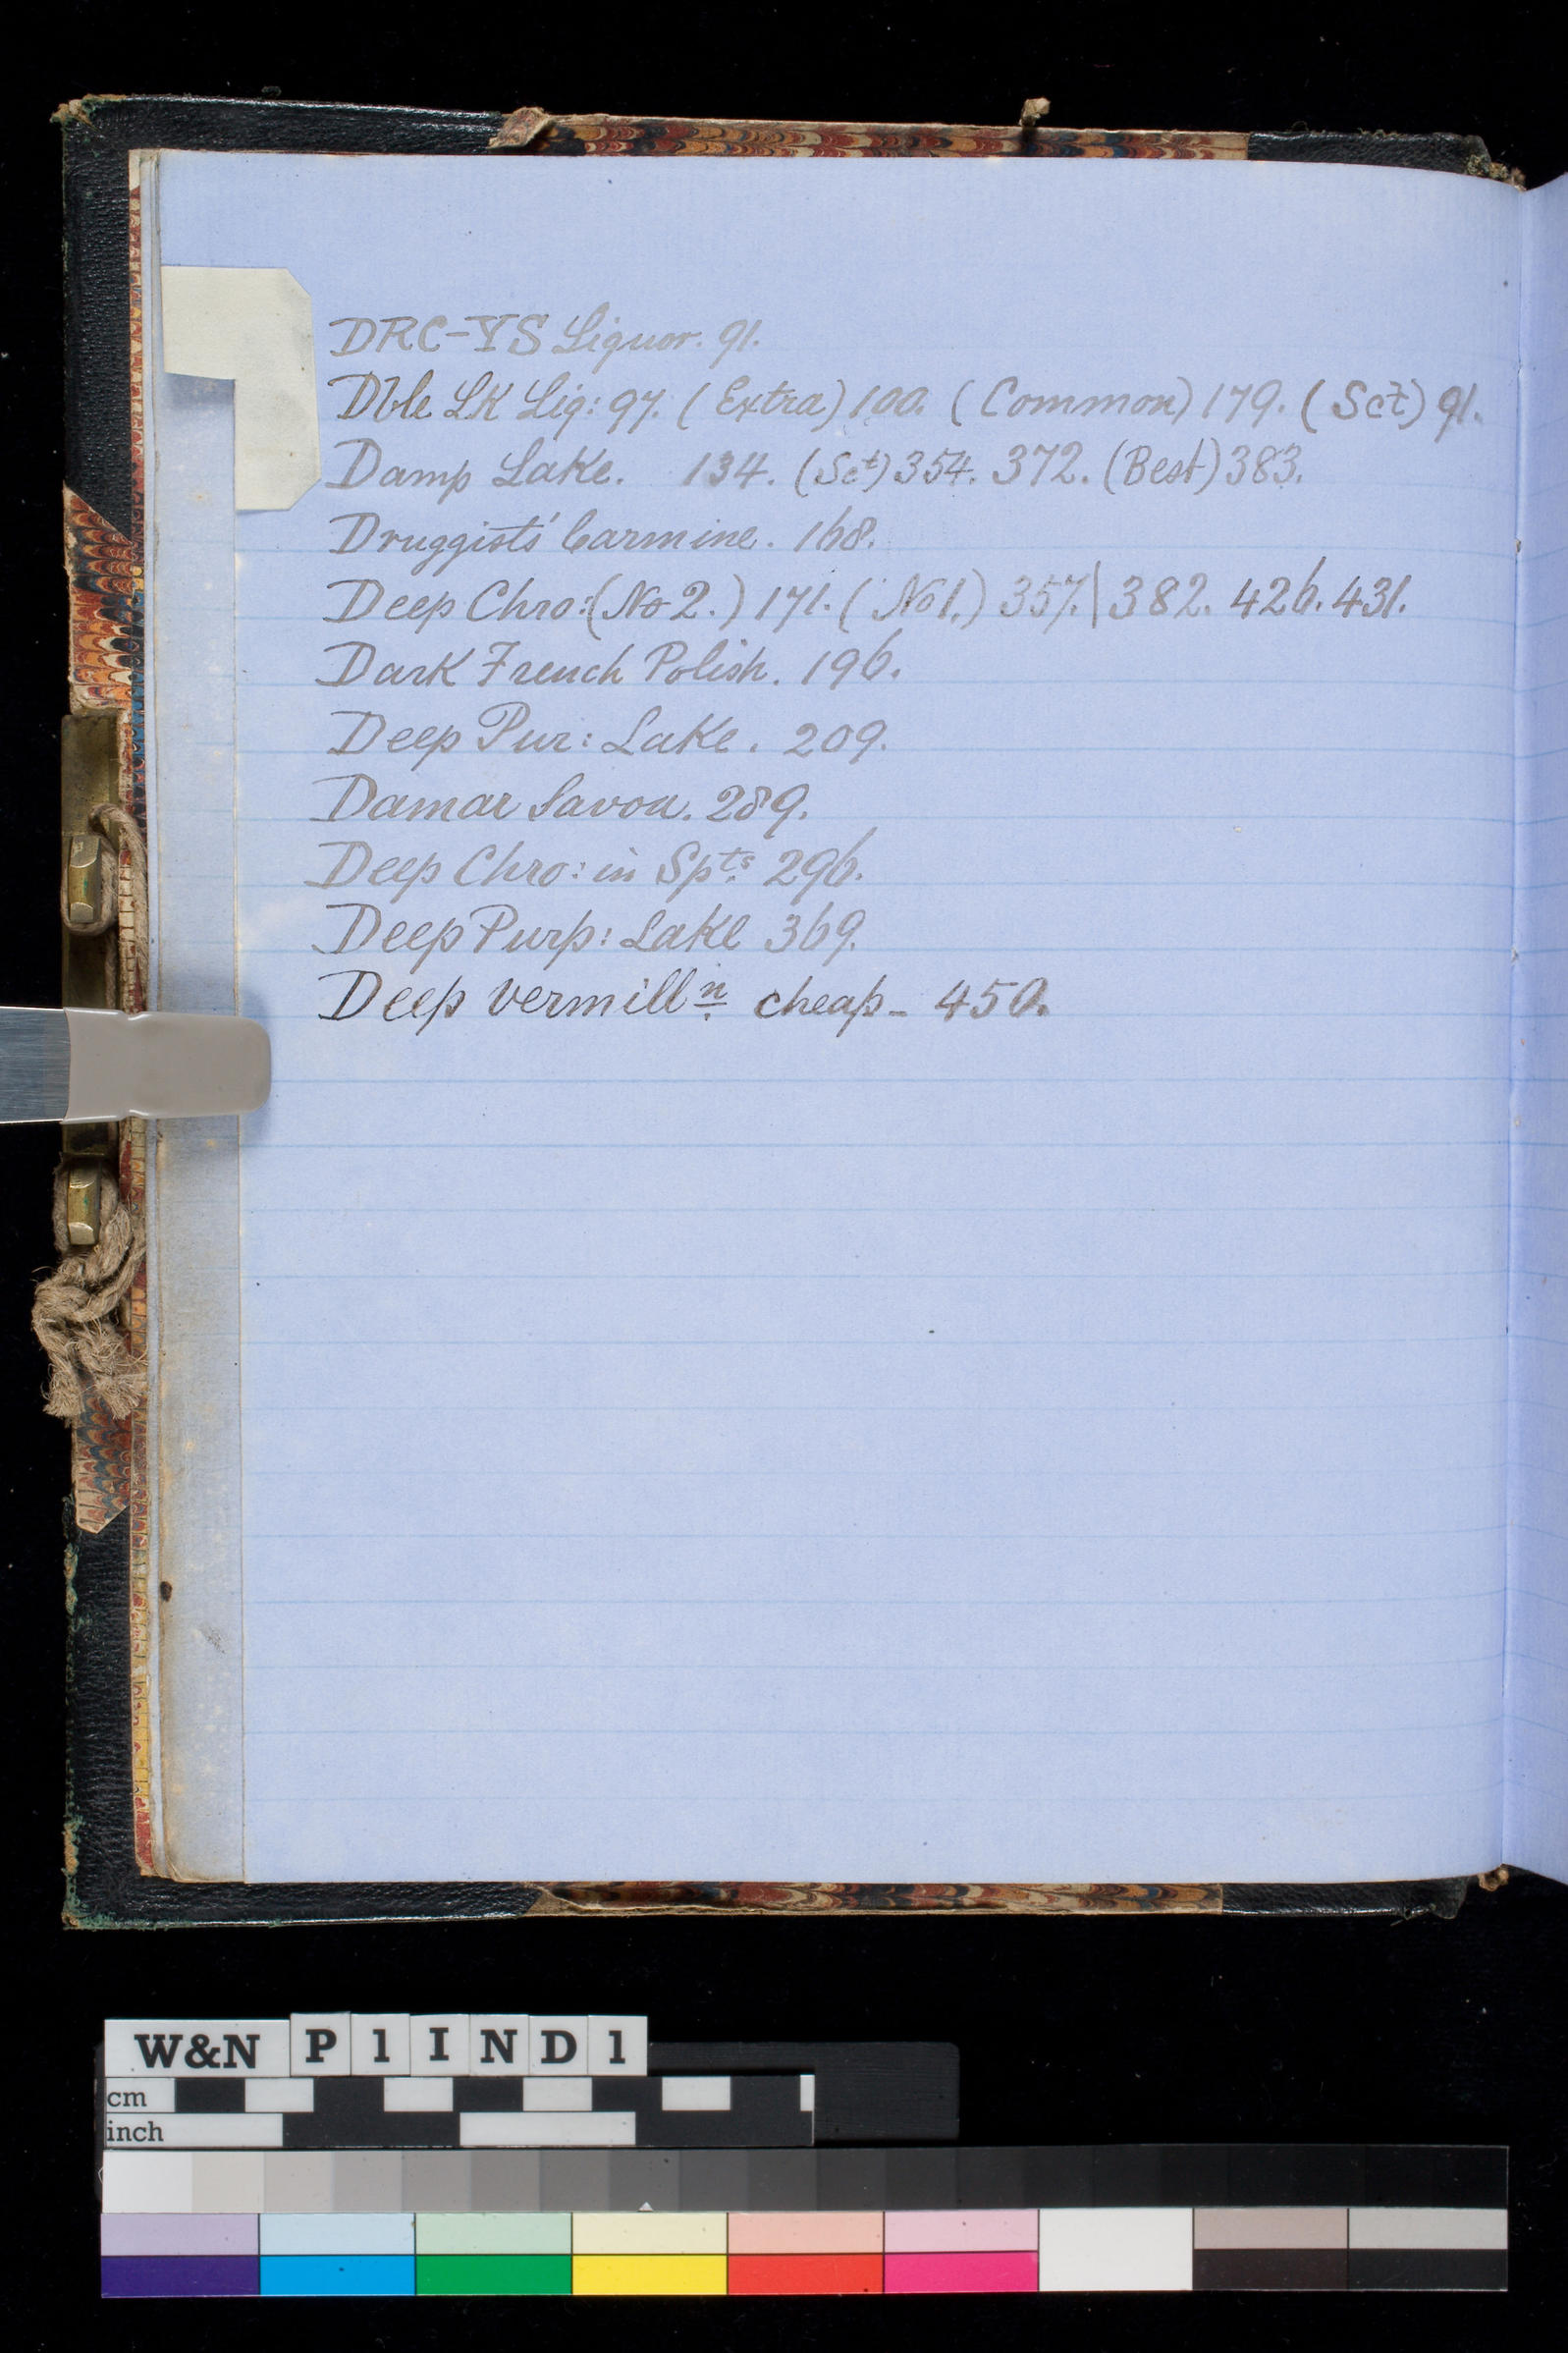 DRC-VS Liquor. 91.
Dble LK Liq: 97. (Extra) 100. (Common) 179. (Sct) 91.
Damp Lake. 134. (Sct) 354. 372. (Best) 383.
Druggists' Carmine. 168.
Deep Chro: (No 2.) 171. (No 1.) 357. | 382. 426. 431.
Dark French Polish. 196.
Deep Pur: Lake. 209.
Damar Savon. 289.
Deep Chro: in Spts. 296.
Deep Purp: Lake 369.
Deep vermilln. cheap - 450.
W&N P1IND1
cm
inch